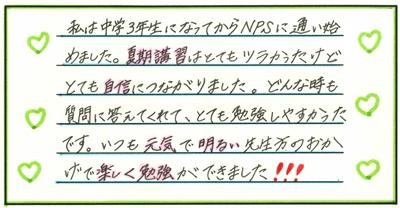 私は中学3年生になってからNPSに通い始
めました。夏期講習はとてもツラかったけど
とても自信につながりました。どんな時も
質問に答えてくれて、とても勉強しやすかった
です。いつも元気で明るい先生方のおか
げで楽しく勉強ができました!!!